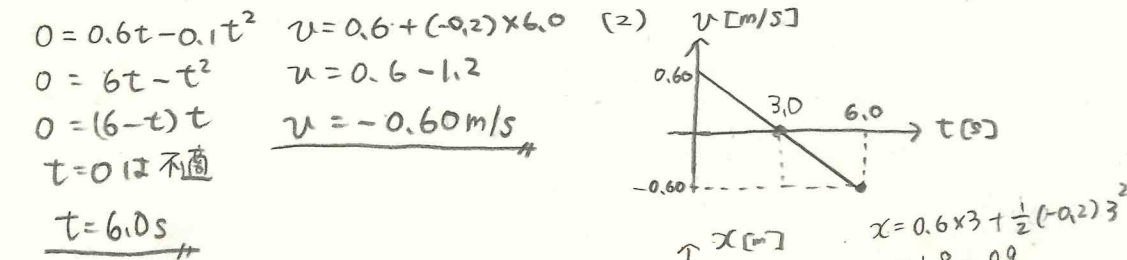 0 = 0.6t - 0.1t²
0 = 6t - t²
0 = (6-t) t
t=0は不適
t = 6.0s
v = 0.6 + (-0.2) × 6.0
v = 0.6 - 1.2
v = -0.60m/s
(2)
v [m/s]
0.60
3.0
6.0
t [s]
-0.60
x [m]
x = 0.6×3 + 1/2 (-0.2) 3²